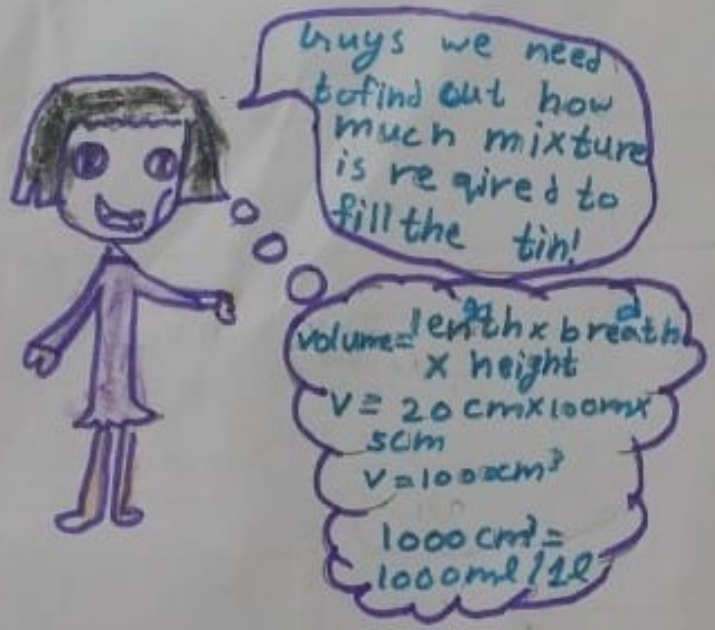 Guys we need
to find out how
much mixture
is re qired to
fill the tin!
volume = length x breadth
x height
V = 20 cm x 10cm x
5cm
V = 1000cm³
1000 cm³ =
1000ml / 1l